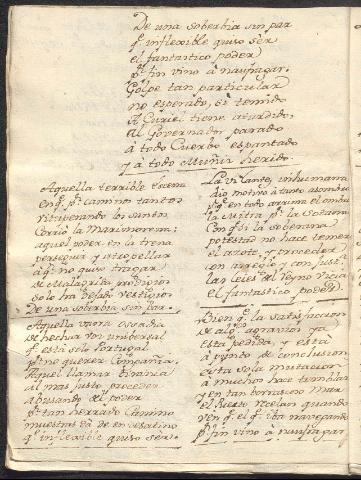 De una soberbia sin par
q.e inflexible quiso ser
el fantastico poder
p.r fin vino à naufragar.
Golpe tan particular
no esperado, ni temido
A Curiel tiene aturdido,
Al Governador parado
à todo Cuerbo espantado
y à todo Muñiz herido.
Aquella terrible Escena
en q.e p.r caminos tantos
vituperando los
Corrió la Marimorena:
aquel poder en la trena
perseguir y atropellar
à q.n no quiso
de Malagrida
solo ha dexado vestigios
De una soberbia sin par.
Aquella vana osadia
de hechura tan universal
q.e esta solo Portugal
p.r no querer Compañia.
Aquel llamar tirania
al mas justo proceder
abusando del poder
p.r tan herrado Camino
muestras dà de un desatino
q.e inflexible quiso sèr.
La vil ante, inhumana
dio motivo à tanto asombro
p.r q.e en todo arrima el ombro
la Mitra p.r la Sotana
Con q.e si la soberana
potestad no hace temer
el azote, y proceder
con arreglo y con justi.a
las leies del Reyno vicia
el fantastico poder.
Bien q.e la satisfaccion
de algo agravios ya
esta pedida, y està
à punto de conclusion,
esta sola mutacion
à muchos hace temblar
y en tan borrascoso mar
el Puerto recelan quando
ven q.e el q.e iba navegando
p.r fin vino à naufragar